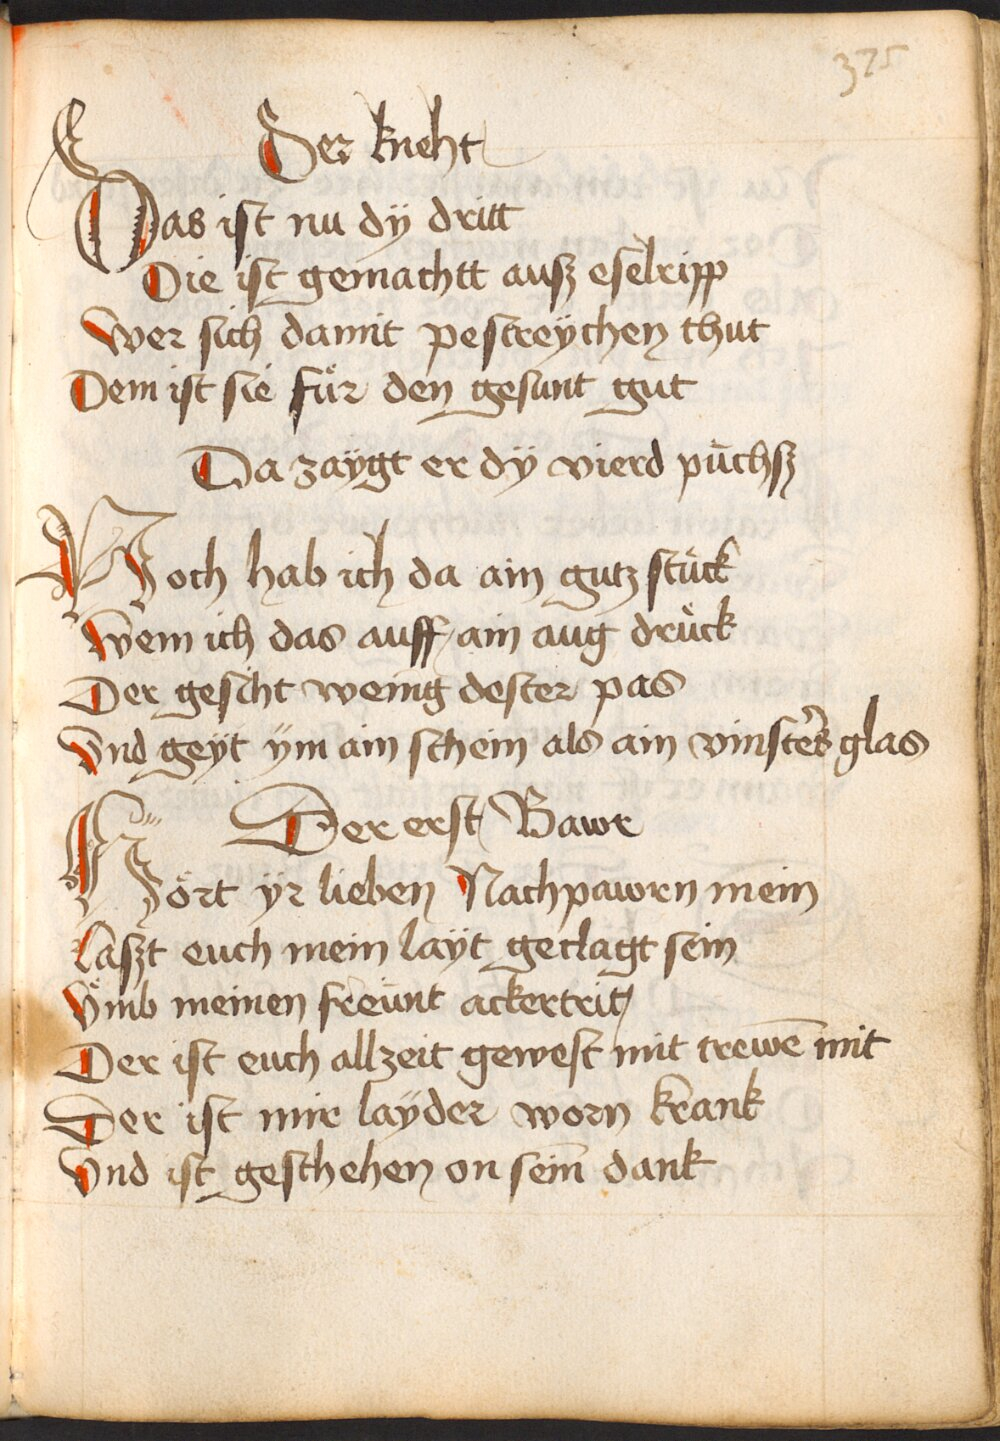 375
Der kneht
Das ist nu dÿ dritt
Die ist gemachtt ausz eselripp
Wer sich damit pestreÿchen thut
Dem ist sie für den gesunt gut
Da zaÿgt er dÿ vierd püchsz
Noch hab ich da ain gutz stück
Wem ich das auff ain aug drück
Der gesiht weing dester pas
Vnd geÿt ÿm ain schein als ain vinsters glas
Der erst Bawr
Hört ÿr lieben Nachpawrn mein
Laszt euch mein laÿt geclagt sein
Vmb meinen freünt ackertrit
Der ist euch allzeit gewest mit trewē mit
Der ist mir laÿder worn krank
Vnd ist geschehen on sein dank